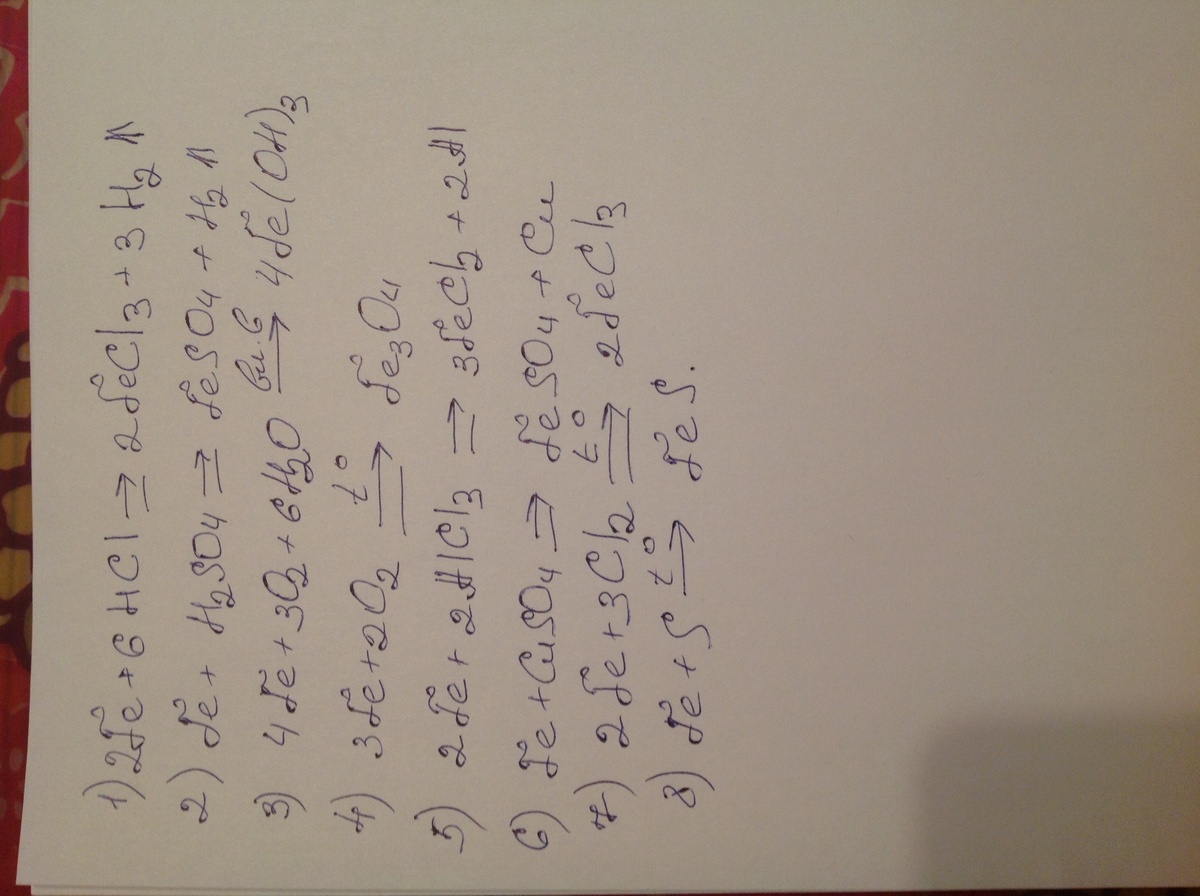 1) 2Fe + 6HCl ⇒ 2FeCl₃ + 3H₂⇑
2) Fe + H₂SO₄ ⇒ FeSO₄ + H₂⇑
3) 4Fe + 3O₂ + 6H₂O вл.в→ 4Fe(OH)₃
4) 3Fe + 2O₂ t°⇒ Fe₃O₄
5) 2Fe + 2AlCl₃ ⇒ 3FeCl₂ + 2Al
6) Fe + CuSO₄ ⇒ FeSO₄ + Cu
7) 2Fe + 3Cl₂ t°⇒ 2FeCl₃
8) Fe + S t°⇒ FeS.